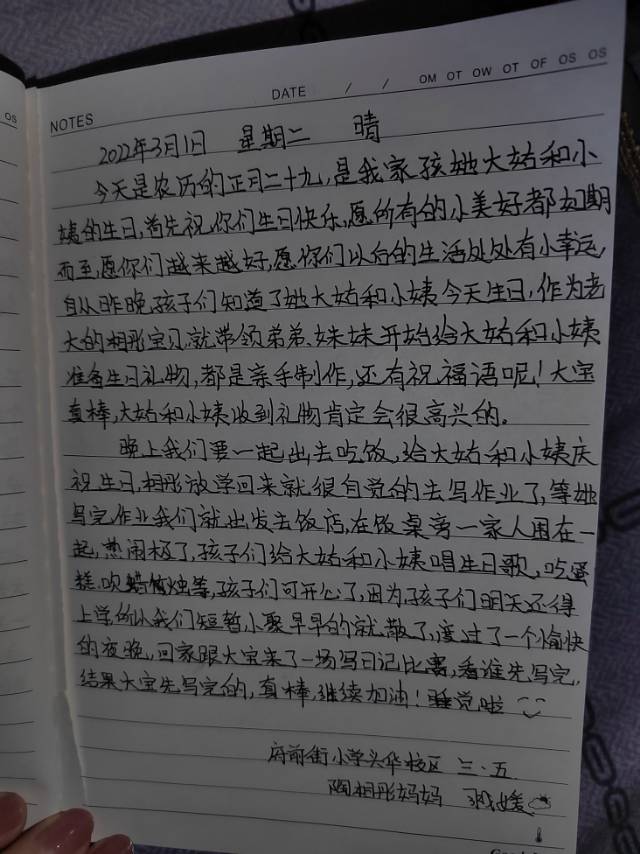 OS
NOTES DATE / / OM OT OW OT OF OS OS
2022年3月1日 星期二 晴
今天是农历的正月二十九,是我家孩她大姑和小
姨的生日,首先祝你们生日快乐,愿所有的小美好都如期
而至,愿你们越来越好,愿你们以后的生活处处有小幸运,
自从昨晚,孩子们知道了她大姑和小姨今天生日,作为老
大的相彤宝贝就带领弟弟、妹妹开始给大姑和小姨
准备生日礼物,都是亲手制作,还有祝福语呢!大宝
真棒,大姑和小姨收到礼物肯定会很高兴的。
晚上我们要一起出去吃饭,给大姑和小姨庆
祝生日,相彤放学回来就很自觉的去写作业了,等她
写完作业我们就出发去饭店,在饭桌旁一家人围在一
起,热闹极了,孩子们给大姑和小姨唱生日歌,吃蛋
糕,吹蜡烛等,孩子们可开心了,因为孩子们明天还得
上学所以我们短暂小聚早早的就散了,度过了一个愉快
的夜晚,回家跟大宝来了一场写日记比赛,看谁先写完,
结果大宝先写完的,真棒,继续加油!睡觉啦
府前街小学头华校区 三·五
陶相彤妈妈 媛